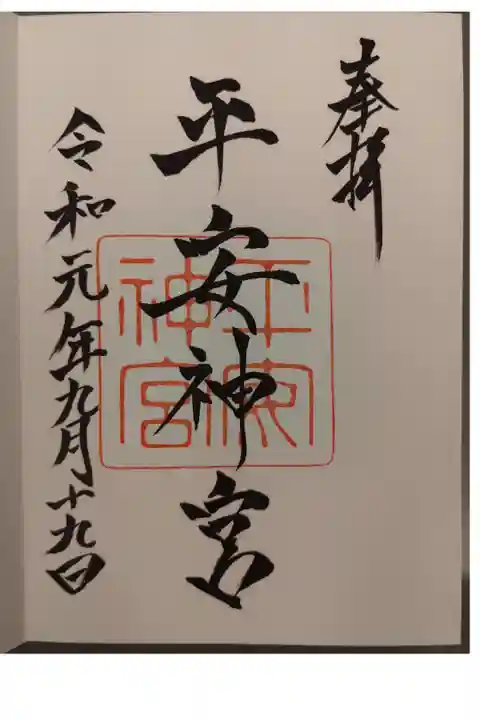 奉拝
平安神宮
平安
神宮
令和元年九月十九日